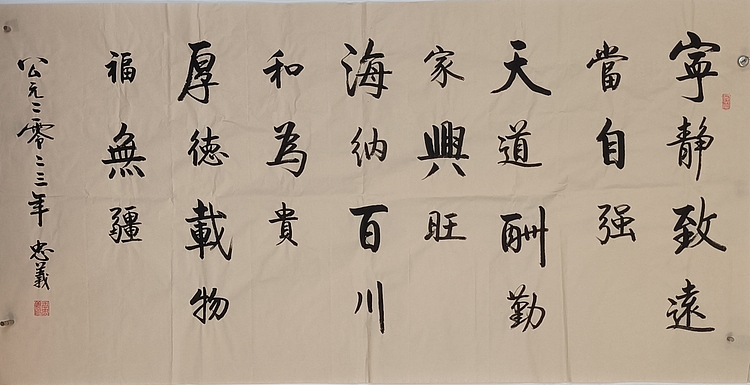 寧静致遠
當自强
天道酬勤
家興旺
海納百川
和為貴
厚徳載物
福無疆
公元二零二三年 忠義